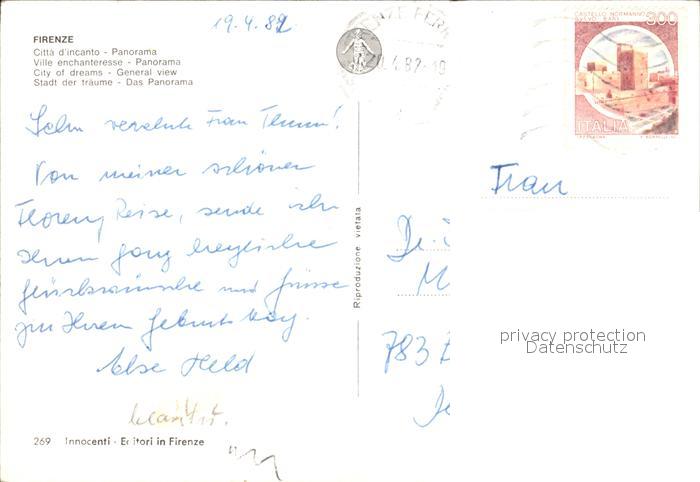 19.4.82
FIRENZE
Città d'incanto - Panorama
Ville enchanteresse - Panorama
City of dreams - General view
Stadt der träume - Das Panorama
Sehr verehrte Frau
Von meiner schönen
Florenz Reise, sende ich
Ihnen ganz herzliche
Glückwünsche und Grüsse
zu Ihrem Geburtstag.
Else Held
269 Innocenti - Editori in Firenze
Riproduzione vietata
4.82-19
CASTELLO NORMANNO
SVEVO BARI
300
ITALIA
Frau
783
privacy protection
Datenschutz